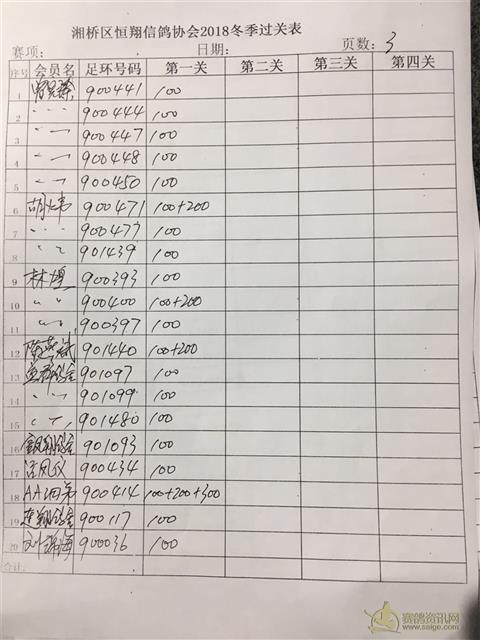 湘桥区恒翔信鸽协会2018冬季过关表
赛项: 日期: 页数: 3
序号 会员名 足环号码 第一关 第二关 第三关 第四关
1 900441 100
2 〃 900444 100
3 〃 900447 100
4 〃 900448 100
5 〃 900450 100
6 胡 900471 100+200
7 〃 900477 100
8 〃 901439 100
9 林 900393 100
10 〃 900400 100+200
11 〃 900397 100
12 901440 100+200
13 901097 100
14 〃 901099 100
15 〃 901480 100
16 901093 100
17 900434 100
18 AA 900414 100+200+300
19 900117 100
20 刘 900036 100
合计:
赛鸽资讯网
www.saige.com